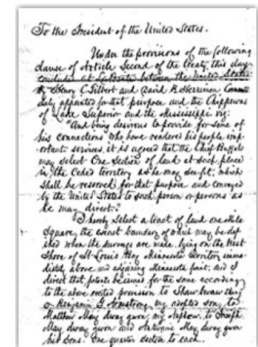 To the President of the United States.
Under the provisions of the following
clause of Article Second of the Treaty, this day
concluded at LaPointe between the United States
by Henry C. Gilbert and David B. Herriman Commrs
duly appointed for that purpose and the Chippewas
of Lake Superior and the Mississippi viz:
"And being desirous to provide for some of
his connections who have rendered his people imp-
ortant services, it is agreed that the Chief Buffalo
may select One section of land at such place
in the Ceded territory as he may see fit, which
shall be reserved for that purpose and conveyed
by the United States to such person or persons as
he may direct."
I hereby Select a tract of land one Mile
Square, the exact boundary of which may be defi-
ned when the surveys are made, lying on the West
Shore of St. Louis Bay Minnesota Territory imme-
diately above and adjoining Minnesota Point, and I
direct that patents be issued for the same according
to the above recited provision to
Benjamin G. Armstrong, my adopted son, to
Matthew May dway gwon, my Nephew, to Joseph
May dway gwon and Antoine May dway gwon
his Sons. One quarter section to each.